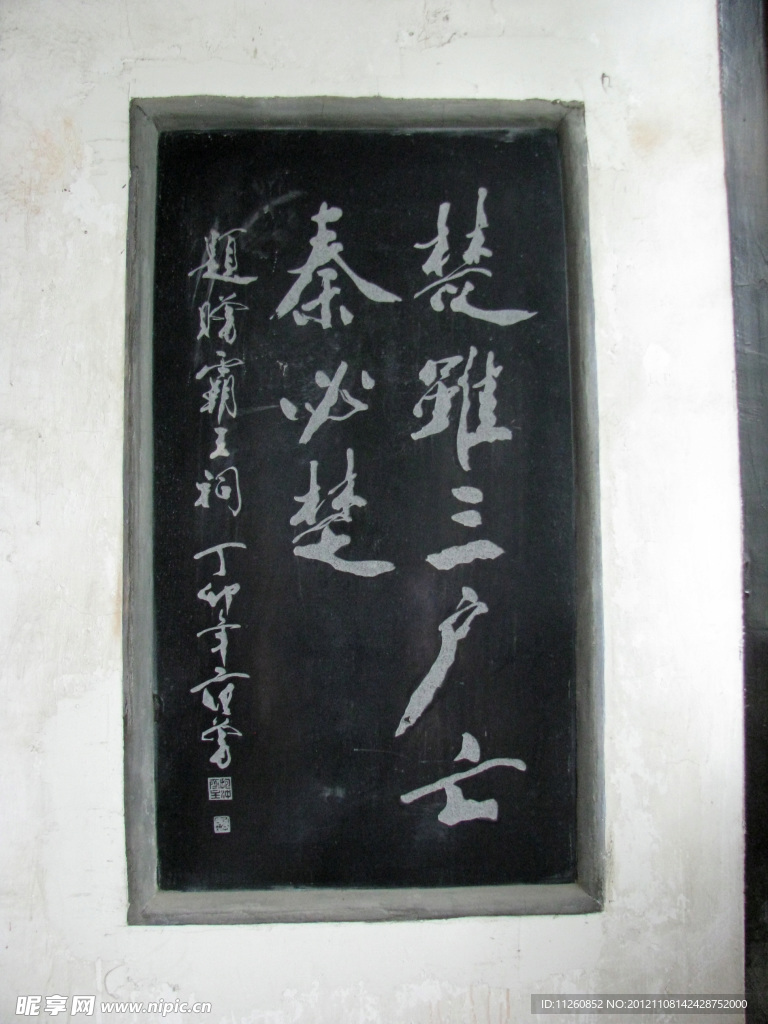 楚雖三户亡
秦必楚
題贈霸王祠 丁卯年
昵享网 www.nipic.cn
ID:11260852 NO:20121108142428752000